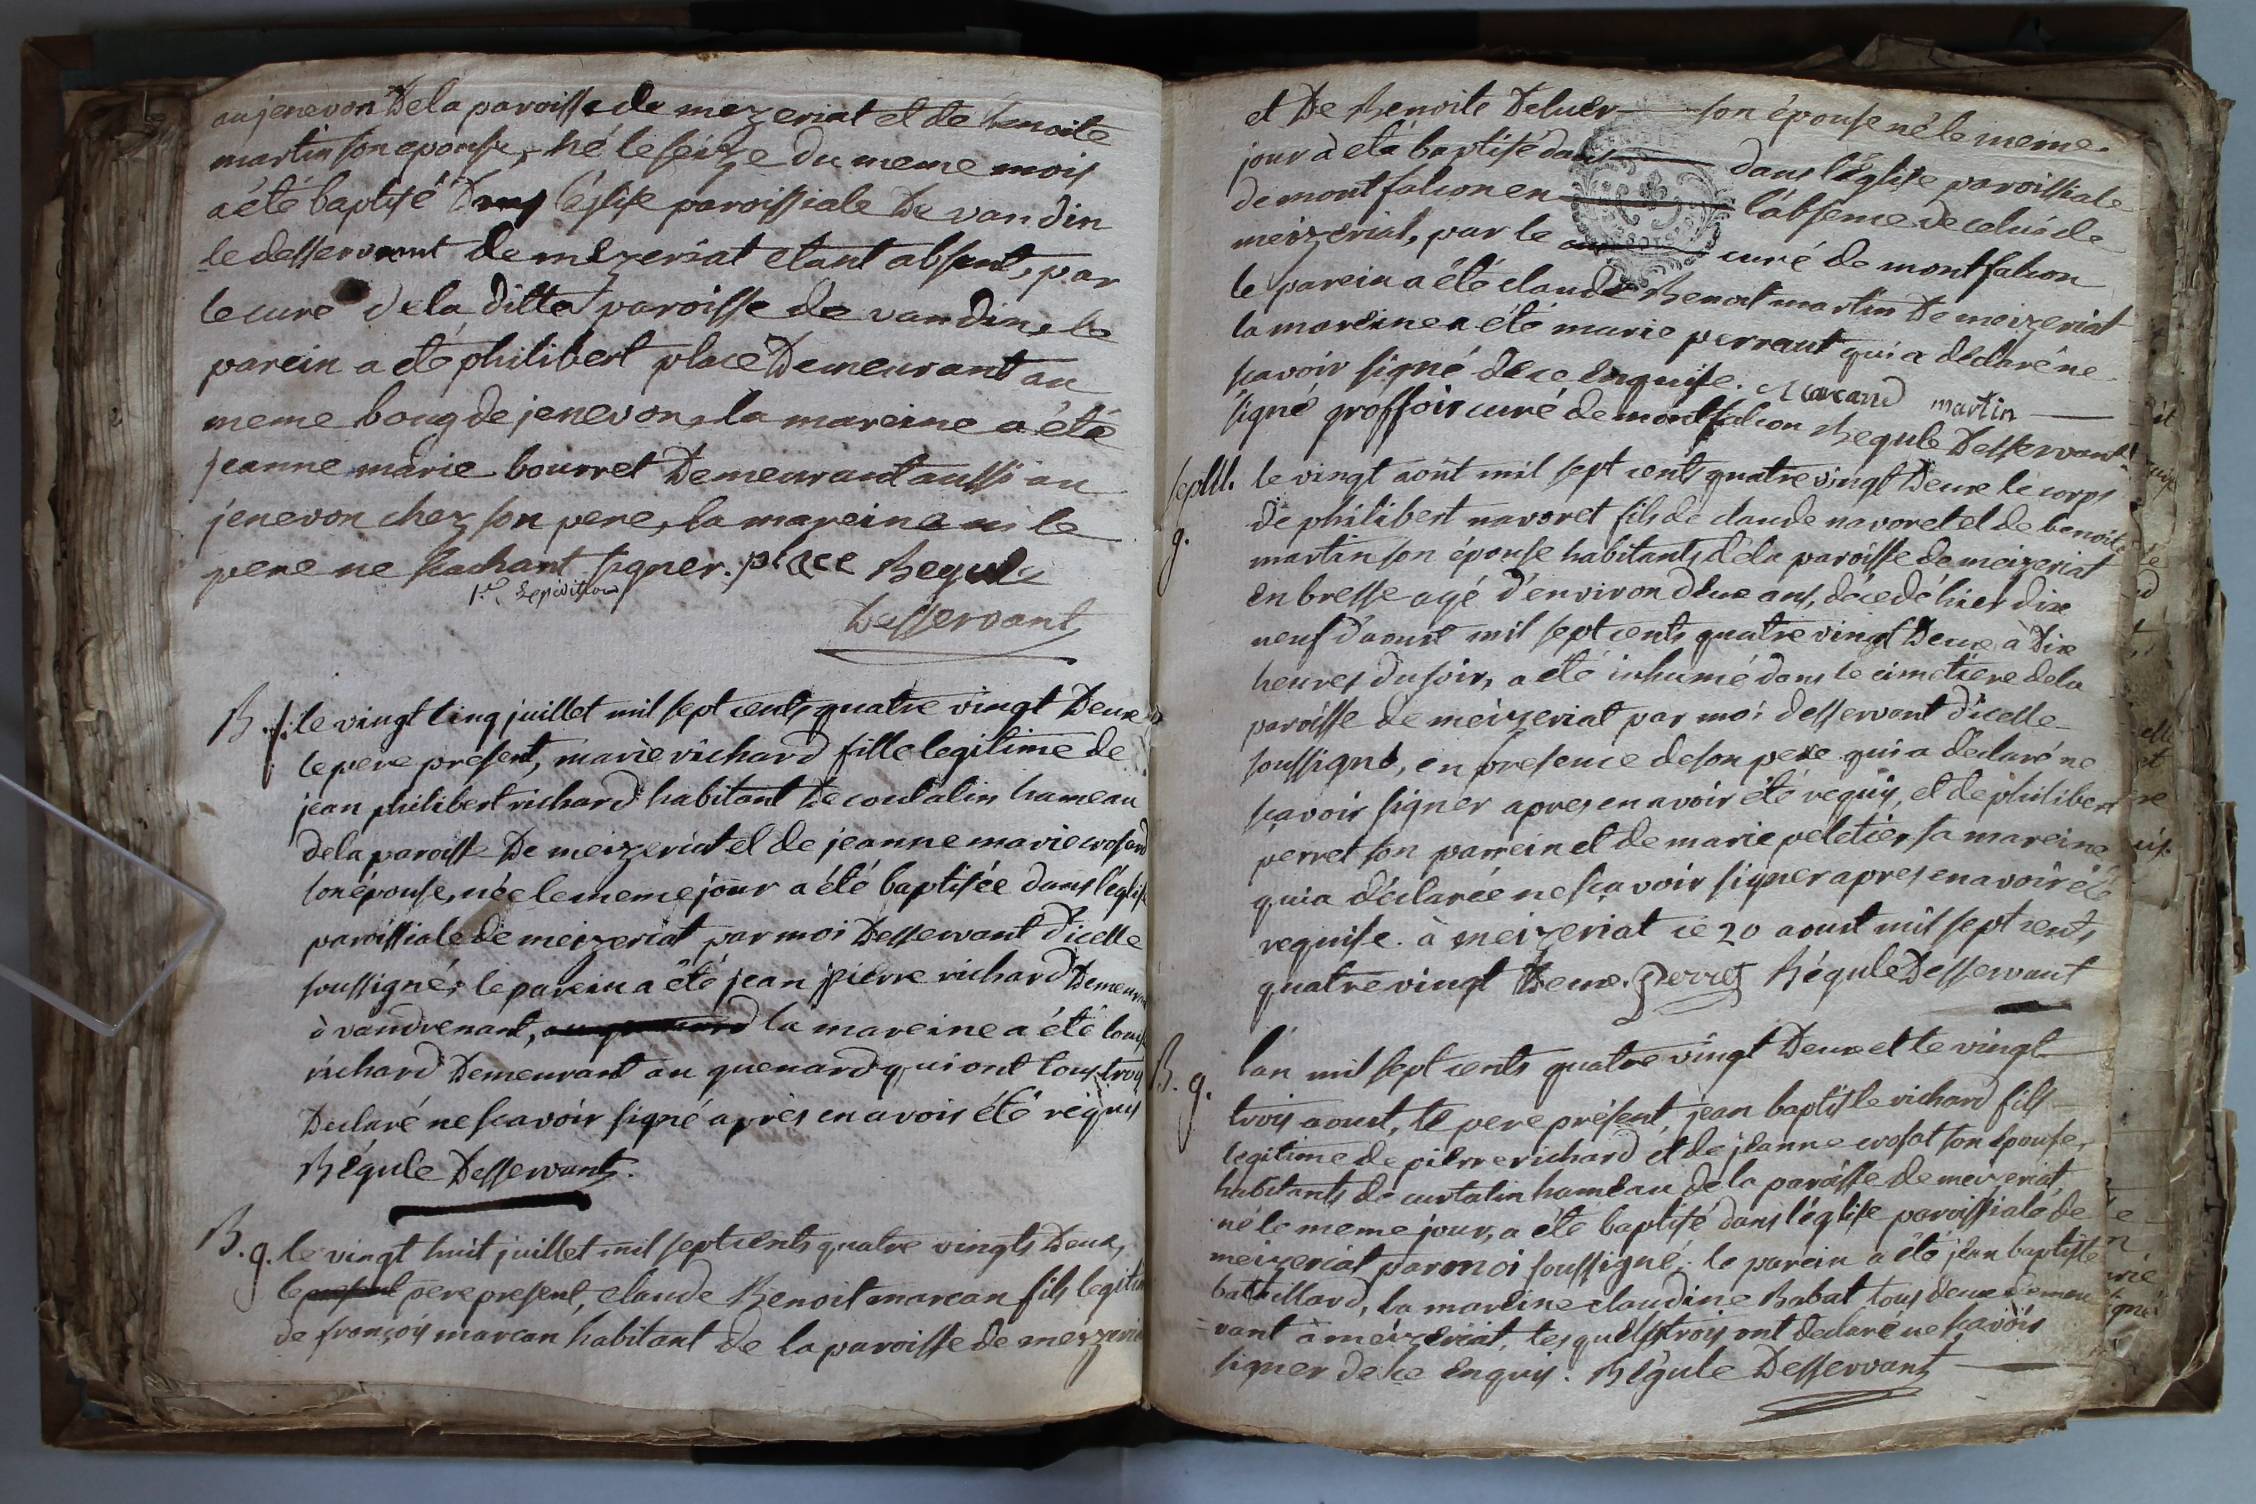 au jenevon De la paroisse de mezeriat et de benoite
martin son epouse, né le seize du meme mois
a été baptisé Dans l'eglise paroissiale De vandin
le desservant de mezeriat etant absent, par
le curé de la ditte paroisse de vandin, le
parein a eté philibert place Demeurant au
meme boug de jenevon, la mareine a été
jeanne marie bourret Demeurant aussi au
jenevon chez son pere, la mareine ni le
pere ne scachant signer. place Regule
1.e Expedition
Desservant
B. f. le vingt cinq juillet mil sept cents quatre vingt Deux
le pere present, marie richard fille legitime de
jean philibert richard habitant De coulatin hameau
de la paroisse De meizeriat et de jeanne marie
son épouse, née le meme jour a été baptisée dans l'église
paroissiale de meizeriat par moi Desservant d'icelle
soussigné; le parein a été jean pierre richard Demeurant
à vandrenant, la mareine a été louise
richard Demeurant au quenard qui ont tous trois
Declaré ne scavoir signé après en avoir été requis
Régule Desservant.
B. g. le vingt huit juillet mil sept cents quatre vingts Deux,
le present pere present, claude Benoit marcan fils legitime
de françois marcan habitant de la paroisse de mezzeriat
et De Benoite son épouse né le meme
jour à été baptisé dans dans l'église paroissiale
de montfalcon en l'absence de celui de
meizeriat, par le curé de montfalcon
le parein a été claude Benoit martin De meizeriat
la mareine a été marie perraut qui a déclaré ne
scavoir signé de ce enquise. Marcand martin
signé groffoir curé de montfalcon Regule Desservant
septil. le vingt août mil sept cents quatre vingt Deux le corps
g. de philibert navoret fils de claude navoret et de benoite
martin son épouse habitants de la paroisse de meizeriat
en bresse agé d'environ deux ans, décedé hier dix
neuf d'aoust mil sept cents quatre vingt Deux à Dix
heures du soir, a été inhumé dans le cimetiere de la
paroisse de meizeriat par moi desservant d'icelle
soussigné, en presence de son pere qui a declaré ne
scavoir signer apres en avoir été requis, et de philibert
perret son parrein et de marie peletier sa mareine
qui a déclarée ne scavoir signer apres en avoir été
requise. à meizeriat ce 20 aoust mil sept cents
quatre vingt Deux. perret Régule Desservant
B. g. l'an mil sept cents quatre vingt Deux et le vingt
trois aoust, le pere présent, jean baptiste richard fils
legitime de pierre richard et de jeanne crosat son épouse,
habitants de curtalin hameau de la paroisse de mezeriat,
né le meme jour, a été baptisé dans l'église paroissiale de
meizeriat par moi soussigné; le parein a été jean baptiste
bataillard, la mareine claudine Rabat tous deux demeu
=rant à meizeriat, lesquels trois ont declaré ne scavoir
signer de ce enquis. Régule Desservant